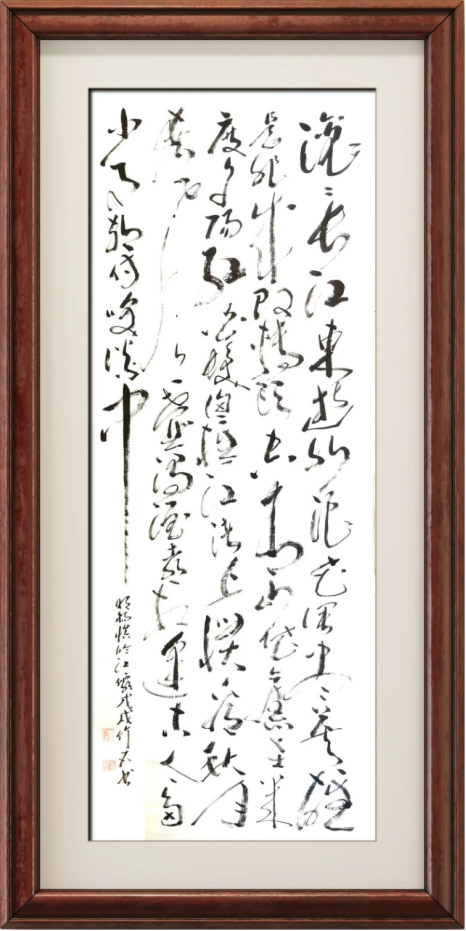 滚〻長江東逝水浪花淘尽英雄
是非成败转头空青山依旧在几
度夕陽红白发渔樵江渚上惯看秋月
春风一壶浊酒喜相逢古今多
少事都付笑谈中
明杨慎临江仙戊戌竹石书